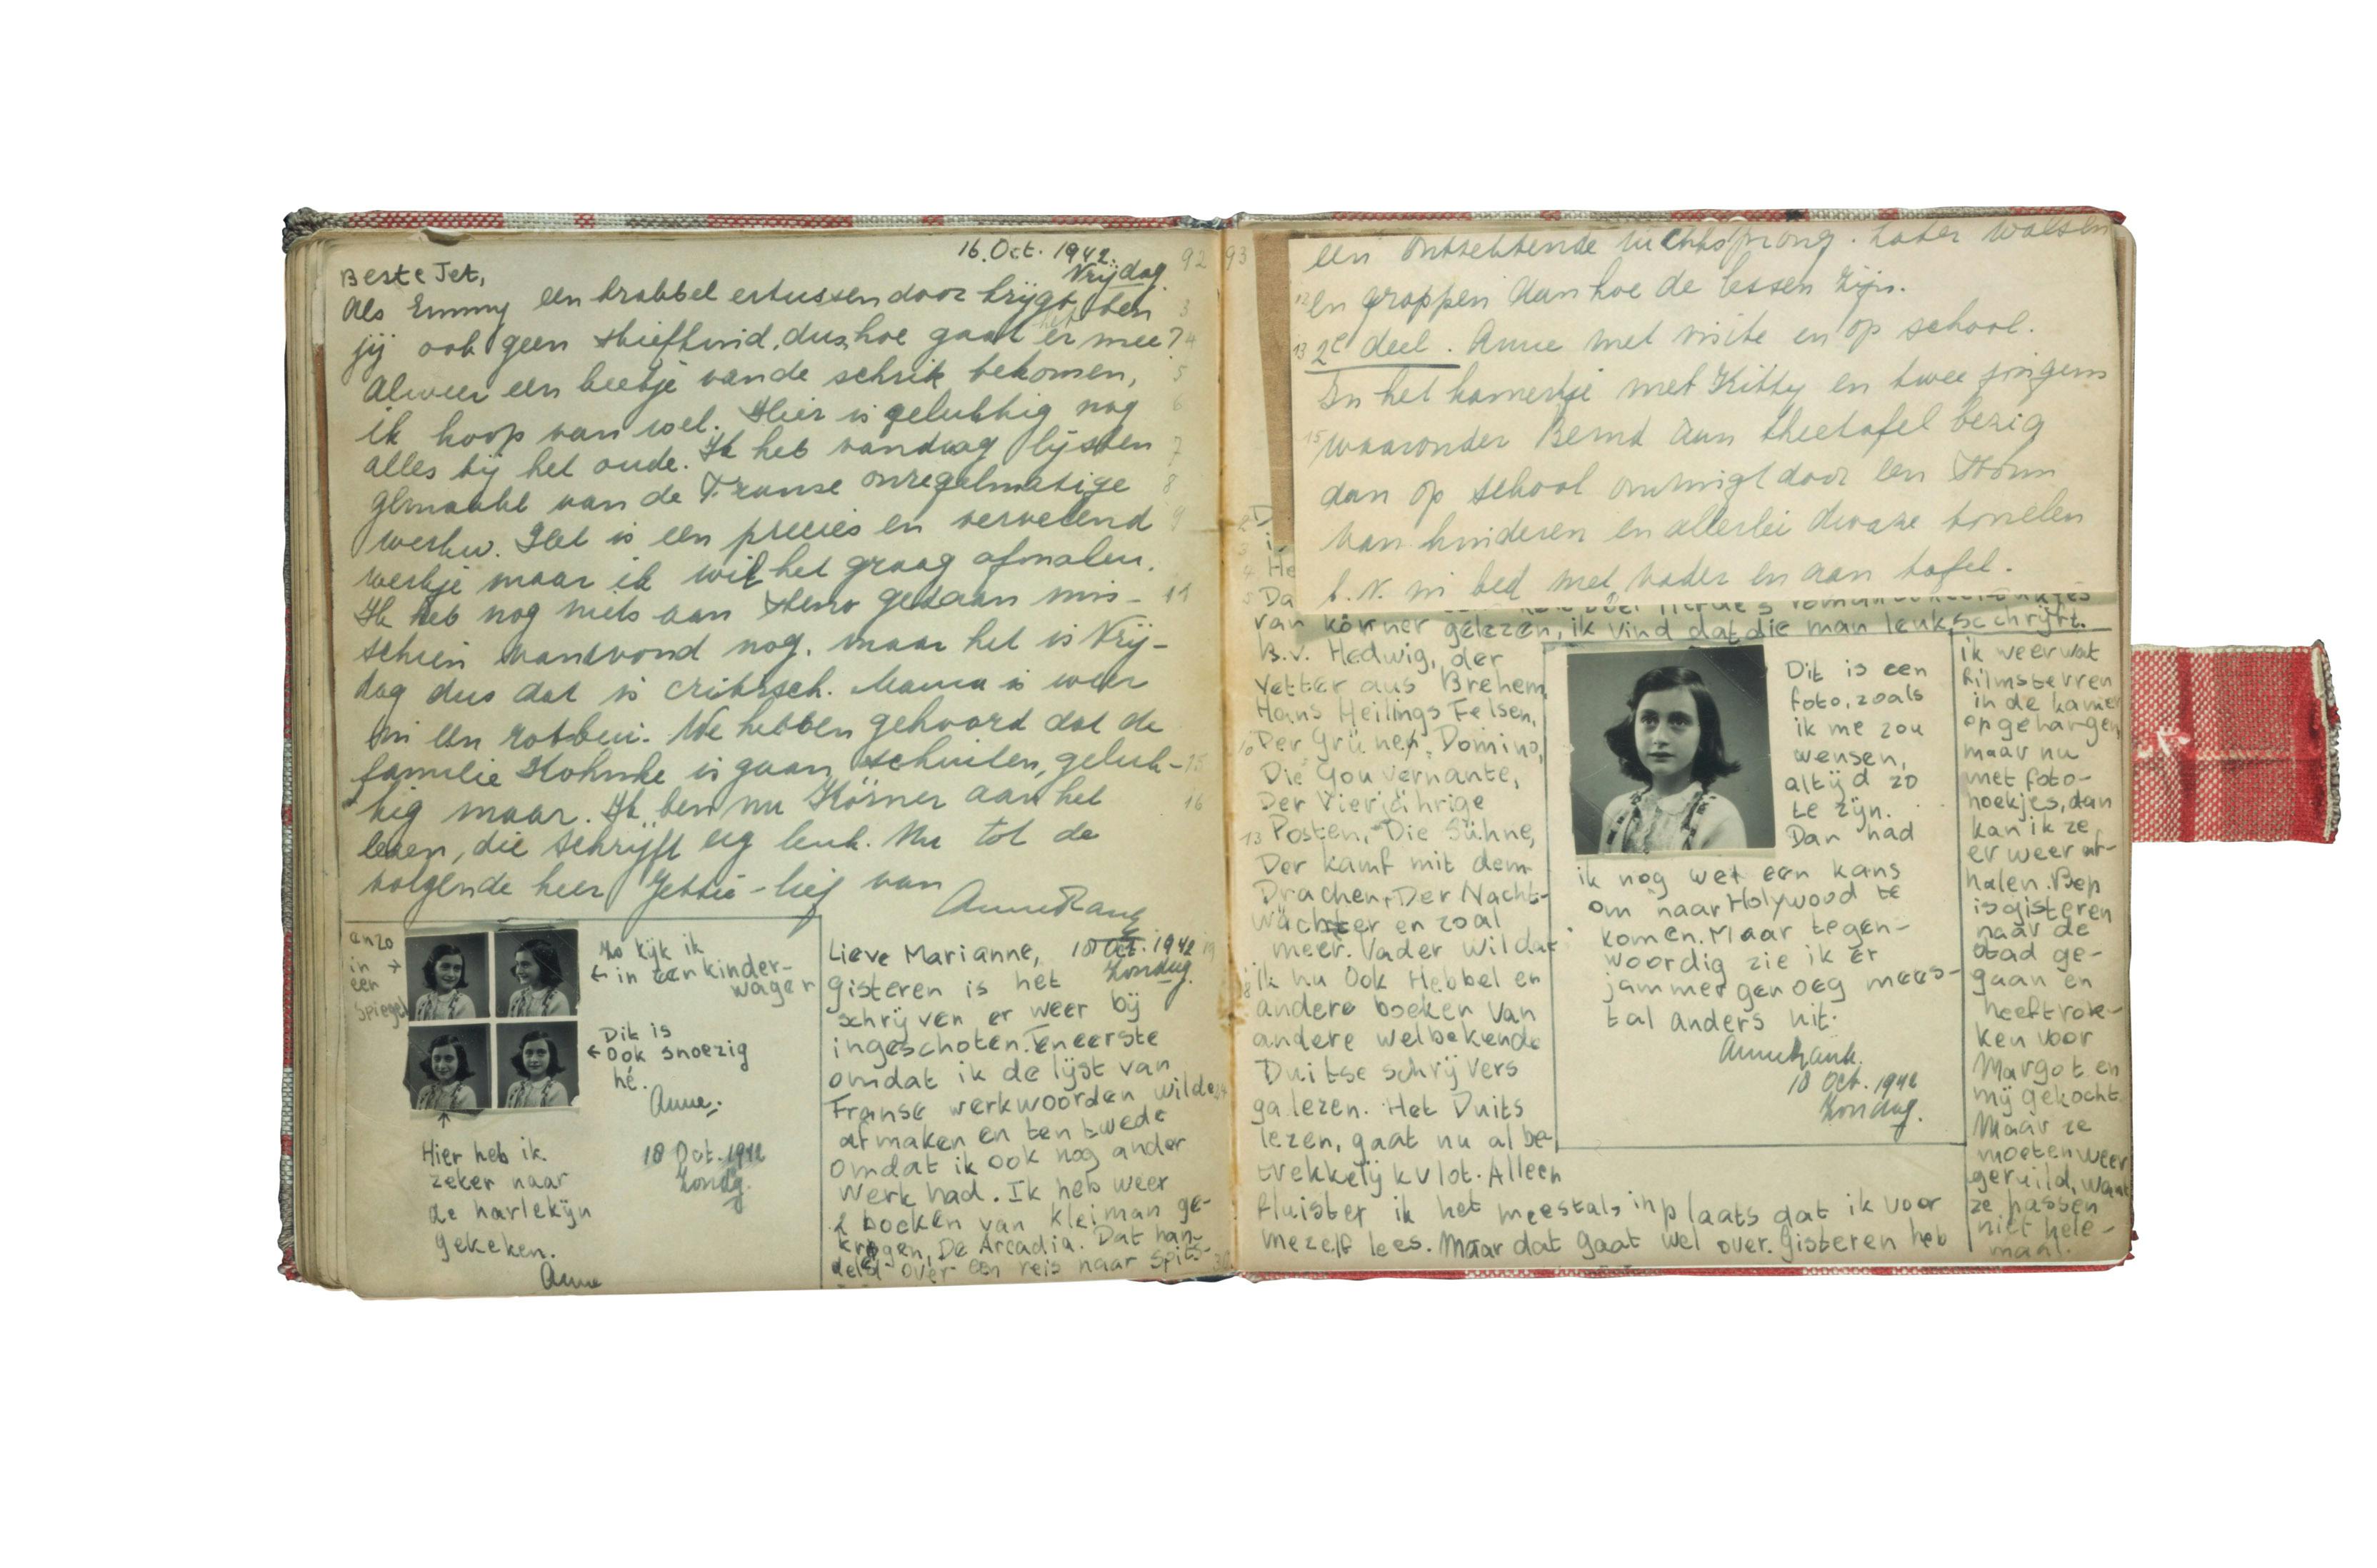 16. Oct. 1942.
Vrijdag.
92
Beste Jet,
Als Emmy een krabbel ertussendoor krijgt ben
3
jij ook geen stiefkind, dus, hoe gaat het er mee?
4
Alweer een beetje van de schrik bekomen,
5
ik hoop van wel. Hier is gelukkig nog
6
alles bij het oude. Ik heb vandaag lijsten
7
gemaakt van de Franse onregelmatige
8
werkw. Het is een precies en vervelend
9
werkje maar ik wil het graag afmaken.
Ik heb nog niets aan steno gedaan mis-
11
schien vanavond nog, maar het is Vrij-
dag dus dat is critisch. Mama is weer
in een rotbui. We hebben gehoord dat de
familie Kohnke is gaan schuilen, geluk-
15
kig maar. Ik ben nu Körner aan het
16
lezen, die schrijft erg leuk. Nu tot de
volgende keer Jettie-lief van
Anne Frank
en zo
in
een
spiegel
Zo kijk ik
in een kinder-
wagen
Dit is
ook snoezig
hé.
Anne.
18 Oct. 1942
Zondg.
Hier heb ik
zeker naar
de harlekijn
gekeken.
Anne
18 Oct. 1942
19
Zondag.
Lieve Marianne,
gisteren is het
schrijven er weer bij
ingeschoten. Ten eerste
omdat ik de lijst van
Franse werkwoorden wilde
24
afmaken en ten twede
omdat ik ook nog ander
werk had. Ik heb weer
2 boeken van Kleiman ge-
kregen, De Arcadia. Dat han-
deld over een reis naar Spits-
30
93
een ontzettende luchtsprong. Later walsen
12
en grappen dan hoe de lessen zijn.
13
2e deel. Anne met visite en op school.
In het kamertje met Kitty en twee jongens
15
waaronder Bernd aan theetafel bezig
dan op school omringt door een storm
van kinderen en allerlei dwaze tonelen
b.v. in bed met vader en aan tafel.
2
3
4
He
5
Da
van körner gelezen, ik vind dat die man leuk schrijft.
B.v. Hedwig, der
Vetter aus Brehem,
Hans Heilings Felsen,
10
Der Grünen Domino,
Die Gouvernante,
Der Vierjährige
13
Posten, Die Sühne,
Der kamf mit dem
Drachen, Der Nacht-
wächter en zoal
meer. Vader wil dat
18
ik nu ook Hebbel en
andere boeken van
andere welbekende
Duitse schrijvers
ga lezen. Het Duits
lezen, gaat nu al be-
trekkelijk vlot. Alleen
fluister ik het meestal, inplaats dat ik voor
mezelf lees. Maar dat gaat wel over. Gisteren heb
Dit is een
foto, zoals
ik me zou
wensen,
altijd zo
te zijn.
Dan had
ik nog wel een kans
om naar Holywood te
komen. Maar tegen-
woordig zie ik er
jammer genoeg mees-
tal anders uit.
Anne Frank.
18 Oct. 1942
Zondag.
ik weer wat
filmsterren
in de kamer
opgehangen,
maar nu
met foto-
hoekjes, dan
kan ik ze
er weer af-
halen. Bep
is gisteren
naar de
stad ge-
gaan en
heeft rok-
ken voor
Margot en
mij gekocht.
Maar ze
moeten weer
geruild, want
ze passen
niet hele-
maal.